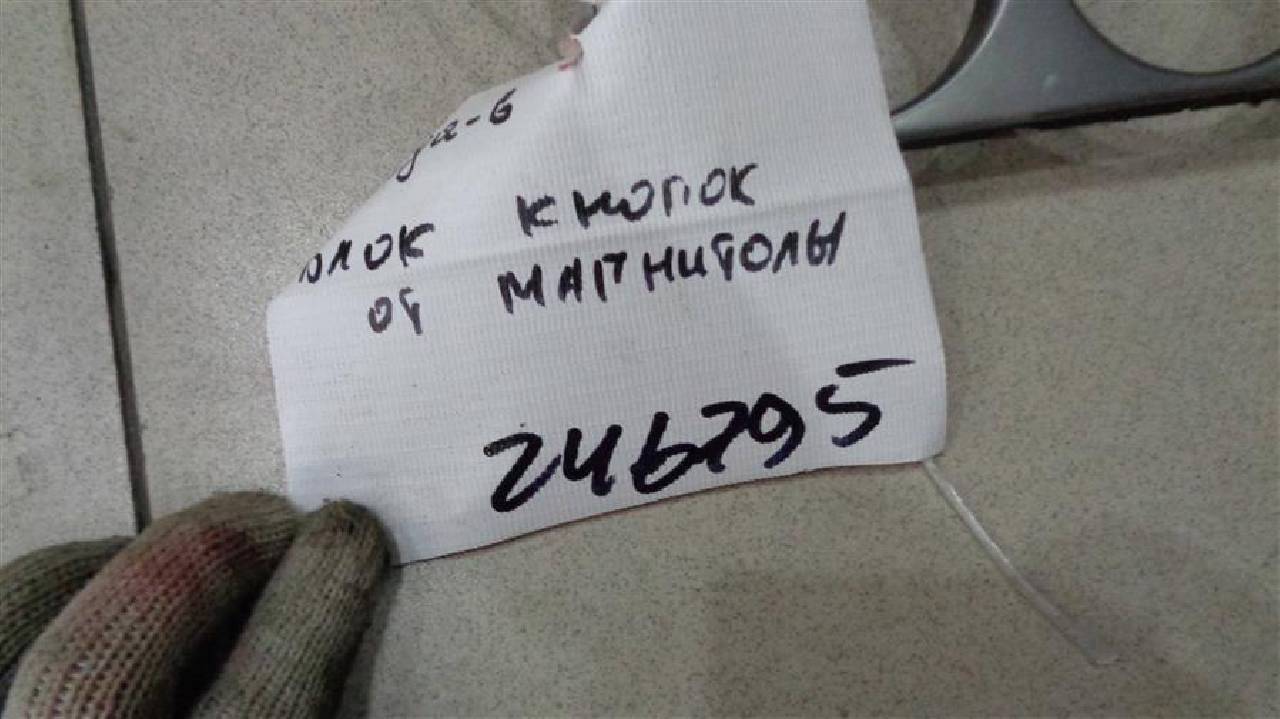 -6
блок кнопок
от магнитолы
246795